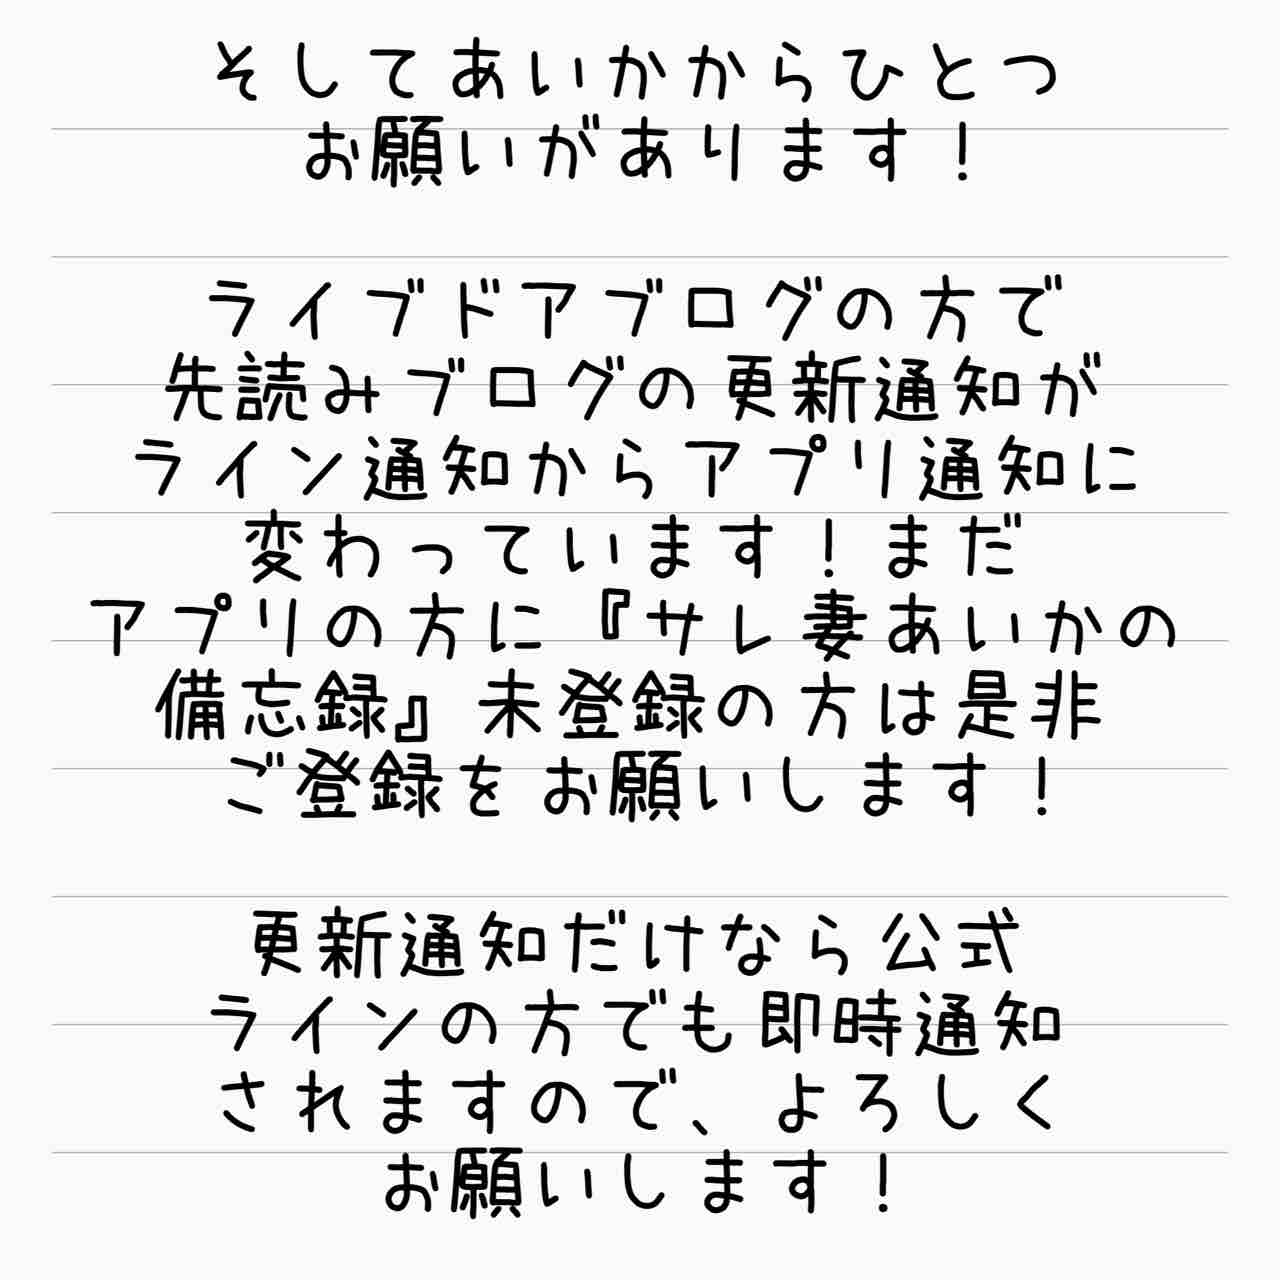 そしてあいかからひとつ
お願いがあります！
ライブドアブログの方で
先読みブログの更新通知が
ライン通知からアプリ通知に
変わっています！まだ
アプリの方に『サレ妻あいかの
備忘録』未登録の方は是非
ご登録をお願いします！
更新通知だけなら公式
ラインの方でも即時通知
されますので、よろしく
お願いします！